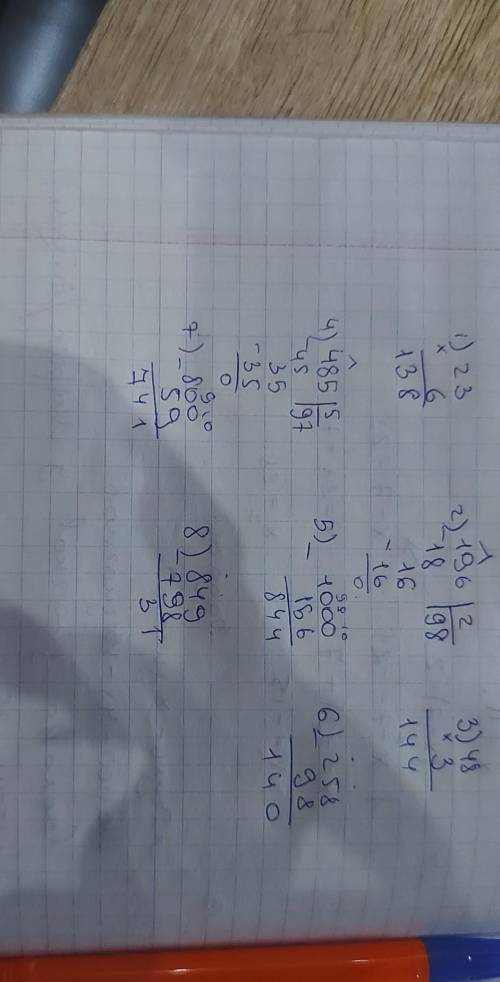 1) 23
× 6
138
2) _196 |2
18 |98
16
-16
0
3) 48
× 3
144
4) _485 |5
45 |97
35
-35
0
5) _ 9 9 10
1000
156
844
6) _258
98
140
7) _ 9 10
800
59
741
8) _849
798
51